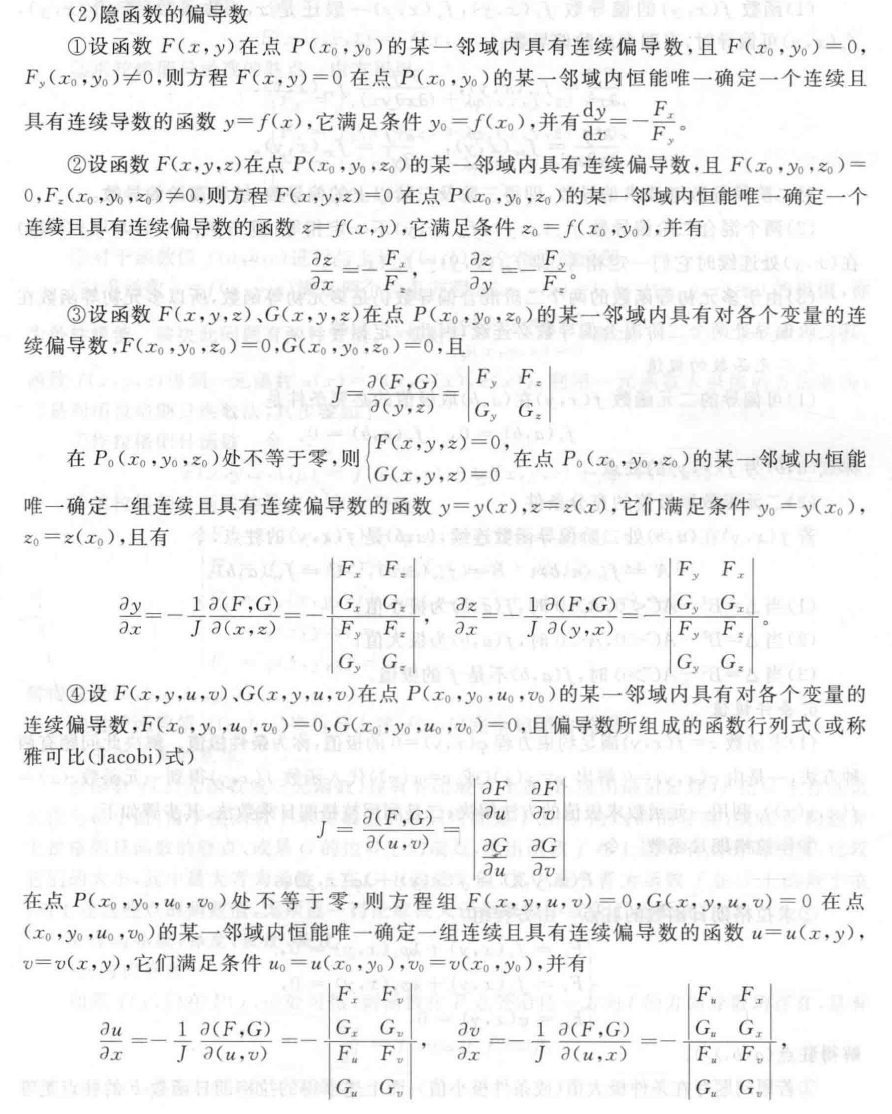 (2)隐函数的偏导数
①设函数 F(x,y)在点 P(x₀,y₀)的某一邻域内具有连续偏导数,且 F(x₀,y₀)=0,
Fᵧ(x₀,y₀)≠0,则方程 F(x,y)=0 在点 P(x₀,y₀)的某一邻域内恒能唯一确定一个连续且
具有连续导数的函数 y=f(x),它满足条件 y₀=f(x₀),并有 dy/dx=-F_x/F_y。
②设函数 F(x,y,z)在点 P(x₀,y₀,z₀)的某一邻域内具有连续偏导数,且 F(x₀,y₀,z₀)=
0,F_z(x₀,y₀,z₀)≠0,则方程 F(x,y,z)=0 在点 P(x₀,y₀,z₀)的某一邻域内恒能唯一确定一个
连续且具有连续偏导数的函数 z=f(x,y),它满足条件 z₀=f(x₀,y₀),并有
∂z/∂x=-F_x/F_z, ∂z/∂y=-F_y/F_z。
③设函数 F(x,y,z)、G(x,y,z)在点 P(x₀,y₀,z₀)的某一邻域内具有对各个变量的连
续偏导数,F(x₀,y₀,z₀)=0,G(x₀,y₀,z₀)=0,且
J=∂(F,G)/∂(y,z)=|F_y F_z; G_y G_z|
在 P₀(x₀,y₀,z₀)处不等于零,则{F(x,y,z)=0, G(x,y,z)=0 在点 P₀(x₀,y₀,z₀)的某一邻域内恒能
唯一确定一组连续且具有连续偏导数的函数 y=y(x),z=z(x),它们满足条件 y₀=y(x₀),
z₀=z(x₀),且有
∂y/∂x=-1/J ∂(F,G)/∂(x,z)=-|F_x F_z; G_x G_z|/|F_y F_z; G_y G_z|, ∂z/∂x=-1/J ∂(F,G)/∂(y,x)=-|F_y F_x; G_y G_x|/|F_y F_z; G_y G_z|。
④设 F(x,y,u,v)、G(x,y,u,v)在点 P(x₀,y₀,u₀,v₀)的某一邻域内具有对各个变量的
连续偏导数,F(x₀,y₀,u₀,v₀)=0,G(x₀,y₀,u₀,v₀)=0,且偏导数所组成的函数行列式(或称
雅可比(Jacobi)式)
J=∂(F,G)/∂(u,v)=|∂F/∂u ∂F/∂v; ∂G/∂u ∂G/∂v|
在点 P(x₀,y₀,u₀,v₀)处不等于零,则方程组 F(x,y,u,v)=0,G(x,y,u,v)=0 在点
(x₀,y₀,u₀,v₀)的某一邻域内恒能唯一确定一组连续且具有连续偏导数的函数 u=u(x,y),
v=v(x,y),它们满足条件 u₀=u(x₀,y₀),v₀=v(x₀,y₀),并有
∂u/∂x=-1/J ∂(F,G)/∂(u,v)=-|F_x F_v; G_x G_v|/|F_u F_v; G_u G_v|, ∂v/∂x=-1/J ∂(F,G)/∂(u,x)=-|F_u F_x; G_u G_x|/|F_u F_v; G_u G_v|